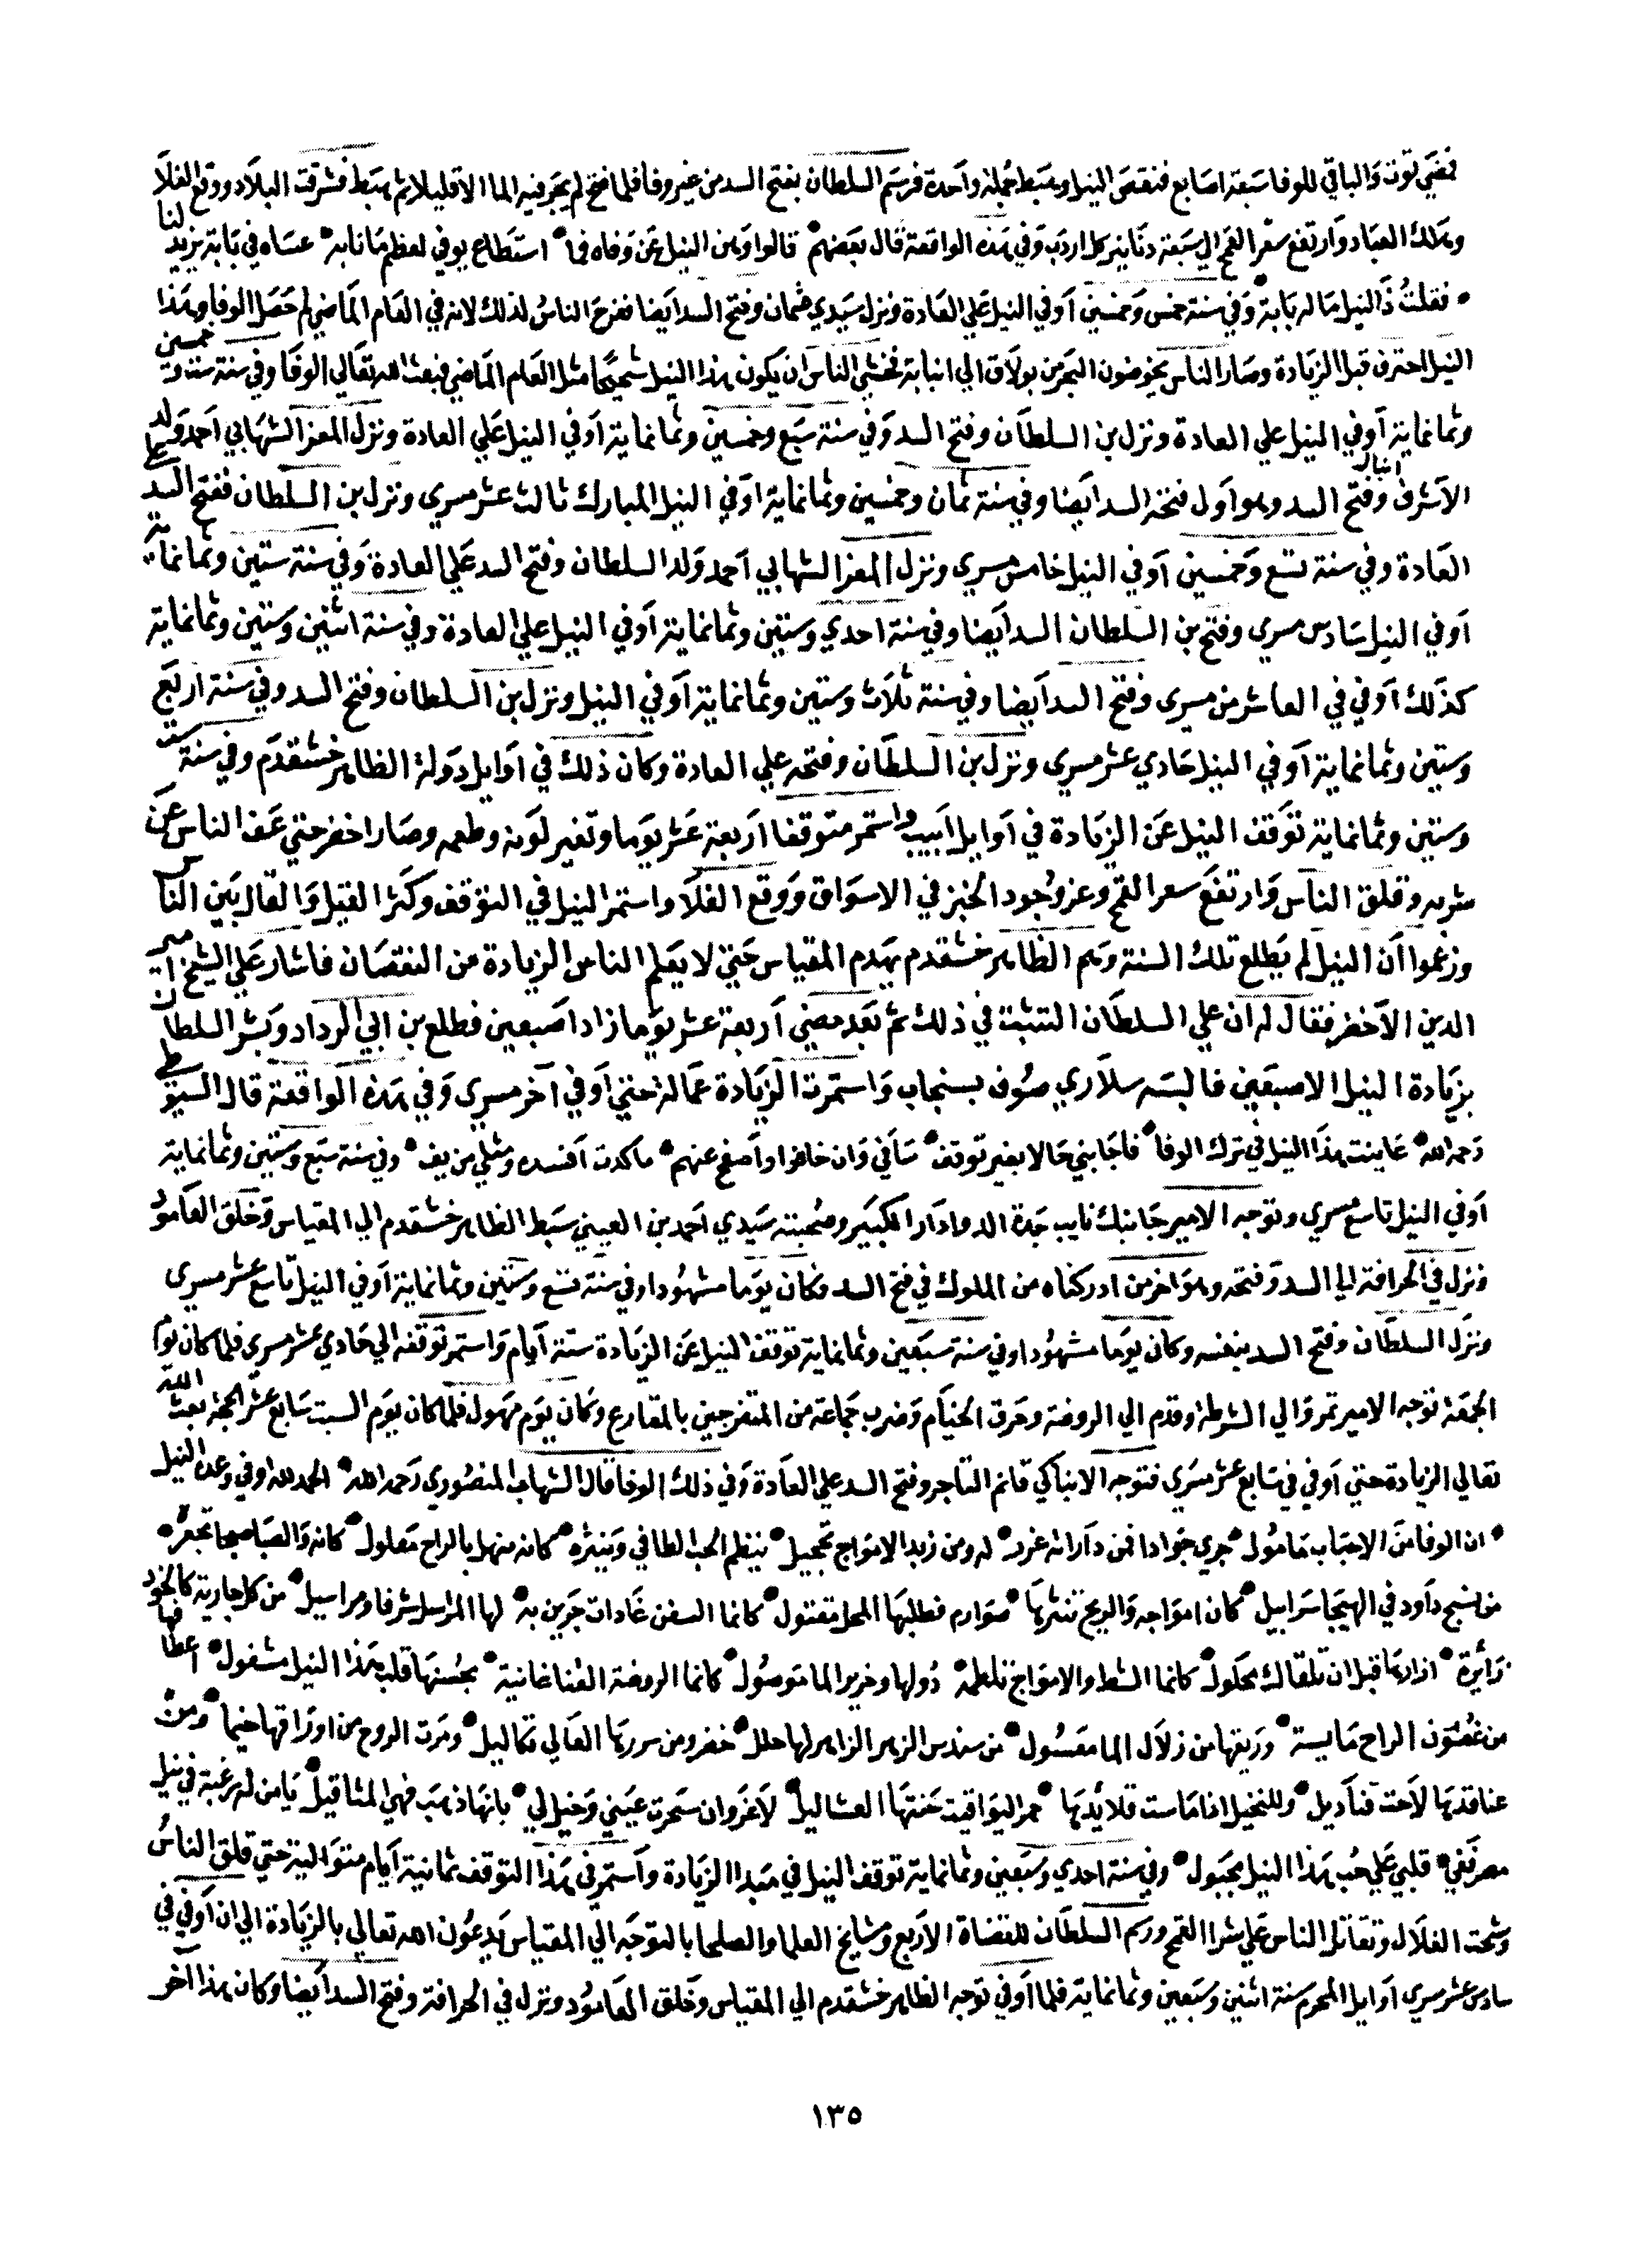 فمضي توت والباقي للوفا سبعة اصابع فنقص النيل وهبط جملة واحدة فرسم السلطان بفتح السد من غير وفا فلما فتح لم يجر فيه الما الا قليلا ثم هبط فشرقت البلاد ووقع الغلا
وهلك العباد وارتفع سعر القمح الي سبعة دنانير كل اردب وفي هذه الواقعة قال بعضهم قالوا وهن النيل عن وفاه فما استطاع يوفي لعظم ما نابه عساه في بابة يزيد لنا
فقلت ذا النيل ما له بابة وفي سنة خمس وخمسين اوفي النيل علي العادة ونزل سيدي عثمان وفتح السد ايضا ففرح الناس لذلك لانه في العام الماضي لم حصل الوفا وهذا
النيل احترق قبل الزيادة وصار الناس يخوضون البحر من بولاق الي انبابة فخشي الناس ان يكون هذا النيل شحيحا مثل العام الماضي فبعث الله تعالي الوفا وفي سنة ست وخمسين
وثمانماية اوفي النيل علي العادة ونزل بن السلطان وفتح السد وفي سنة سبع وخمسين وثمانماية اوفي النيل علي العادة ونزل المعز الشهابي احمد ولد
الاشرف اينال وفتح السد وهو اول فتحه السد ايضا وفي سنة ثمان وخمسين وثمانماية اوفي النيل المبارك ثالث عشر مسري ونزل بن السلطان ففتح السد علي
العادة وفي سنة تسع وخمسين اوفي النيل خامس مسري ونزل المعز الشهابي احمد ولد السلطان وفتح السد علي العادة وفي سنة ستين وثمانماية
اوفي النيل سادس مسري وفتح بن السلطان السد ايضا وفي سنة احدي وستين وثمانماية اوفي النيل علي العادة وفي سنة اثنين وستين وثمانماية
كذلك اوفي في العاشر من مسري وفتح السد ايضا وفي سنة ثلاث وستين وثمانماية اوفي النيل ونزل بن السلطان وفتح السد وفي سنة اربع
وستين وثمانماية اوفي النيل حادي عشر مسري ونزل بن السلطان وفتحه علي العادة وكان ذلك في اوايل دولة الظاهر خشقدم وفي سنة ست
وستين وثمانماية توقف النيل عن الزيادة في اوايل ابيب واستمر متوقفا اربعة عشر يوما وتغير لونه وطعمه وصار اخضر حتي عف الناس عن
شربه وقلق الناس وارتفع سعر القمح وعز وجود الخبز في الاسواق ووقع الغلا واستمر النيل في التوقف وكثر القيل والقال بين الناس
وزعموا ان النيل لم يطلع تلك السنة وهم الظاهر خشقدم بهدم المقياس حتي لا يعلم الناس الزيادة من النقصان فاشار علي الشيخ امين
الدين الاخضر فقال له ان علي السلطان التثبت في ذلك ثم بعد مضي اربعة عشر يوما زاد اصبعين فطلع بن ابي الرداد وبشر السلطان
بزيادة النيل الاصبعين فالبسه سلاري صوف بسنجاب واستمرت الزيادة عمالة حتي اوفي آخر مسري وفي هذه الواقعة قال السيوطي
رحمه الله عاينت هذا النيل في ترك الوفا فاجابني حالا بغير توقف سافي وان خانوا واصفح عنهم ما كدت افسده ومثلي من يف وفي سنة سبع وستين وثمانماية
اوفي النيل تاسع مسري وتوجه الامير جانبك نايب جدة الدوادار الكبير وصحبته سيدي احمد بن العيني سبط الظاهر خشقدم الي المقياس وخلق العامود
ونزل في الحراقة الي السد وفتحه وهو اخر من ادركناه من الملوك في فتح السد وكان يوما مشهودا وفي سنة تسع وستين وثمانماية اوفي النيل تاسع عشر مسري
ونزل السلطان وفتح السد بنفسه وكان يوما مشهودا وفي سنة سبعين وثمانماية توقف النيل عن الزيادة ستة ايام واستمر توقفه الي حادي عشر مسري فلما كان يوم
الجمعة توجه الامير تمر والي الشوطة وقدم الي الروضة وحرق الخيام وضرب جماعة من المتفرجين بالمقارع وكان يوم مهول فلما كان يوم السبت سابع عشر الحجة بعث الله
تعالي الزيادة حتي اوفي في سابع عشر مسري فتوجه الاتابكي قانم التاجر وفتح السد علي العادة وفي ذلك الوفا قال الشهاب المنصوري رحمه الله الحمد لله اوفي وعده النيل
ان الوفا من الاحباب مامول جري جوادا فمن داراته غرر له ومن زبد الامواج تحجيل ينظم الحب الطافي وينثره كانه منهل بالراح معلول كانه والصبا صبحا تجعده
من نسج داود في الهيجا سرابيل كان امواجه والريح تنشرها صوارم فطلبها المحل مقتول كانما السفن غادات جرين به لها المراسل شرفا ومراسيل من كل جارية كالخود
زائرة ازارها قبل ان تلقاك محلول كانما الشط والامواج تلطمه دولها وخرير الما موصول كانما الروضة الغنا غانية بحسنها قلب هذا النيل مشغول اعطافها
من غصون الراح مايسة وريقها من زلال الما معسول من سندس الزهر الزاهر لها حلل خضر ومن سررها العالي تكاليل ومرت الروح من اوراقها خيما ومن
عناقدها لاحت قناديل وللنخيل اذا ماست قلائدها حمر اليواقيت حنتها العثاليل لا غرو ان سحرت عيني وخيل لي بانها ذهب فهي المثاقيل يا من له رغبة في نيل
معرفتي قلبي علي حب هذا النيل مجبول وفي سنة احدي وسبعين وثمانماية توقف النيل في مبدا الزيادة واستمر في هذا التوقف ثمانية ايام متوالية حتي قلق الناس
وشحت الغلال وتقاتل الناس علي شرا القمح ورسم السلطان للقضاة الاربع ومشايخ العلما والصلحا بالتوجه الي المقياس يدعون الله تعالي بالزيادة الي ان اوفي في
سادس عشر مسري اوايل المحرم سنة اثنين وسبعين وثمانماية فلما اوفي توجه الظاهر خشقدم الي المقياس وخلق العامود ونزل في الحراقة وفتح السد ايضا وكان هذا آخر
١٣٥